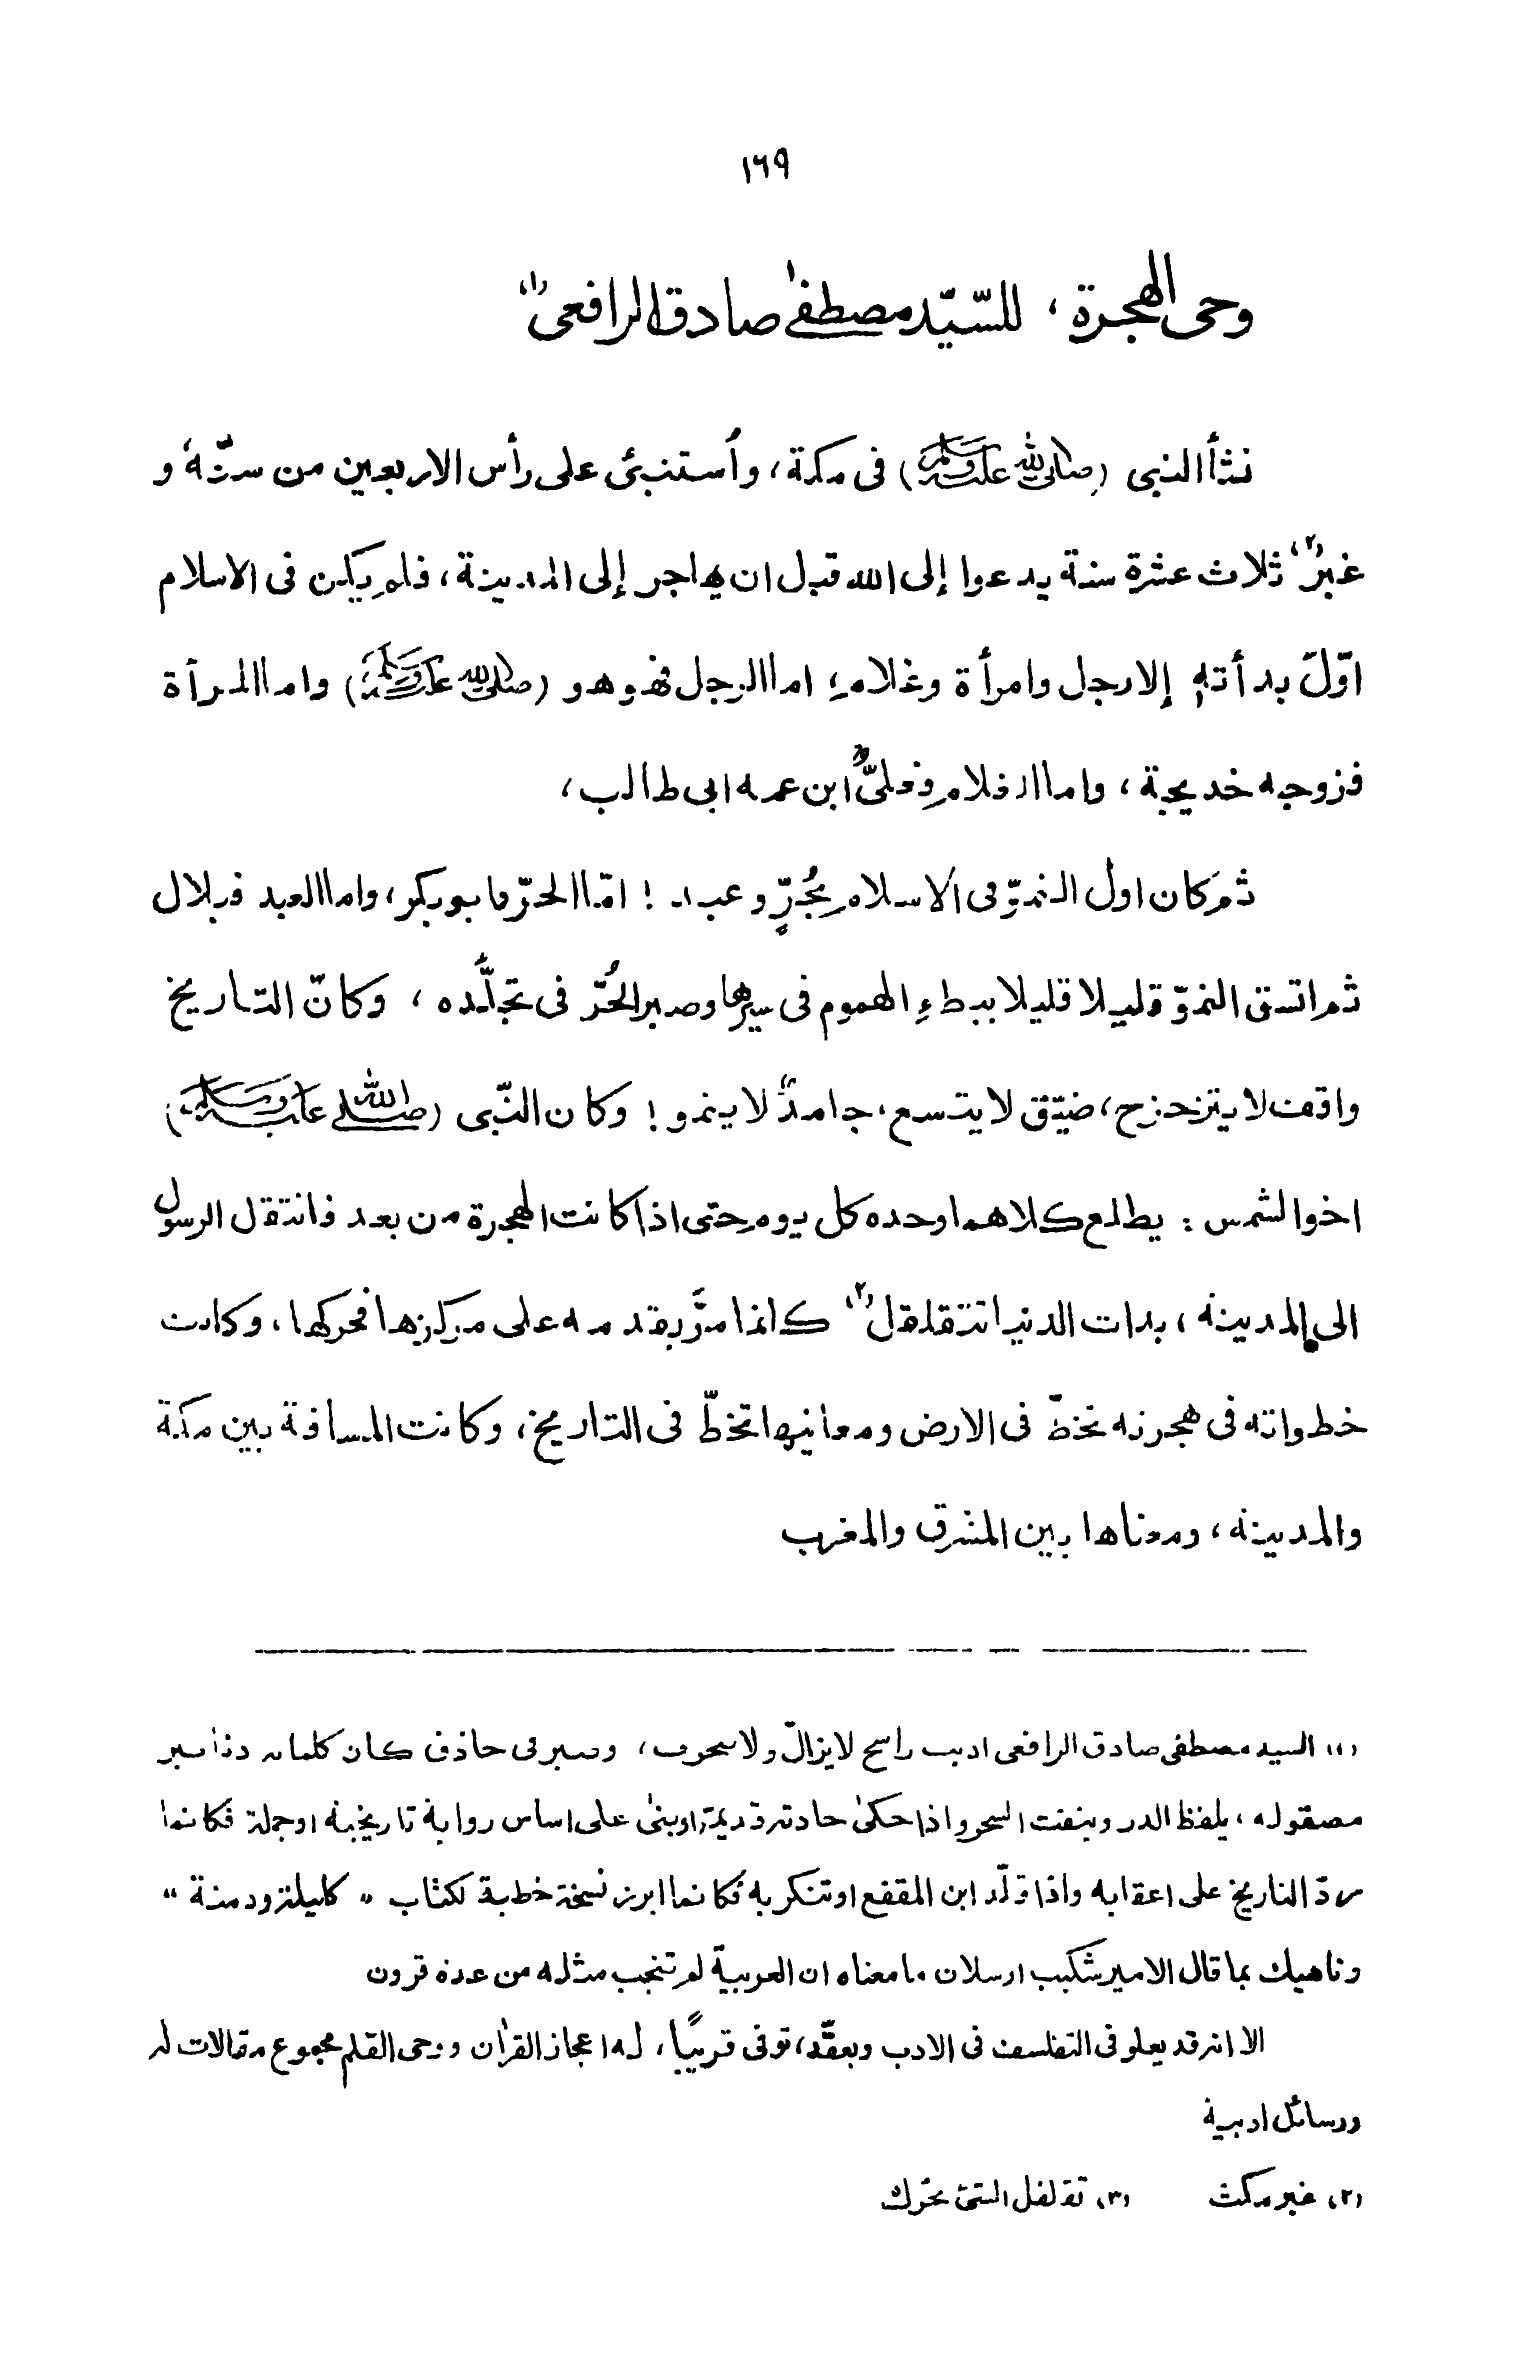 ١٦٩
وحى الهجرة ، للسّيّد مصطفىٰ صادق الرافعى (١)
نشأ النبى (صلى الله عليه وسلم) فى مكة، وأستنبئ على رأس الاربعين من سنّه، و
غبر (٢) ثلاث عشرة سنة يدعوا إلى الله قبل ان يهاجر إلى المدينة، فلم يكن فى الاسلام
اوّلَ بدأته إلا رجل وامرأة وغلام، اما الرجل فهو هو (صلى الله عليه وسلم) واما المرأة
فزوجه خديجة، واما الغلام فعلىٌّ ابن عمه ابى طالب،
ثم كان اول النموّ فى الاسلام بحُرٍّ وعبد ! امّا الحرّ فابوبكر، واما العبد فبلال
ثم اتسق النموّ قليلا قليلا ببطءِ الهموم فى سيرها وصبر الحُرّ فى تجلُّده ، وكانّ التاريخ
واقف لا يتزحزح، ضيّق لا يتسع، جامدٌ لا ينمو ! وكان النّبى (صلى الله عليه وسلم)
اخوالشمس : يطلع كلاهما وحده كل يوم حتى اذا كانت الهجرة من بعد فانتقل الرسول
الى المدينة، بدات الدنيا تتقلقل (٢) كانما مرَّ بقدمه على مركزها فحركها، وكانت
خطواته فى هجرته تخطّ فى الارض ومعانيها تخطّ فى التاريخ، وكانت المسافة بين مكة
والمدينة، ومعناها بين المشرق والمغرب
(١) السيد مصطفى صادق الرافعى اديب راسخ لايزالّ ولا ، وصيرفى حاذق كان كلماته دنانير
مصقوله، يلفظ الدر وينفث السحر واذا حكىٰ حادثه قديمة اوبنىٰ على اساس رواية تاريخية اوجملة فكانما
ردّ التاريخ على اعقابه واذا قلّد ابن المقفع اوتنكر به فكانما ابرز نسخة خطية لكتاب " كليله ودمنة "
وناهيك بما قال الامير شكيب ارسلان ما معناه ان العربيّة لم تنجب مثله من عدة قرون
الا انه قد يعلو فى التفلسف فى الادب ويعقّد، توفى قريبًا، له اعجاز القرآن ووحى القلم مجموع مقالات له
ورسائل ادبية
(٢) غبر مكث (٣) تقلقل الشئ تحرّك